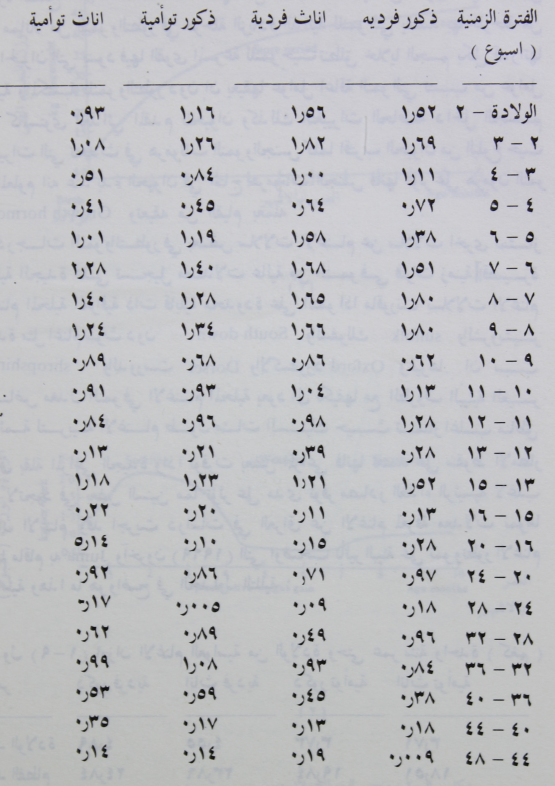 الفترة الزمنية ذكور فرديه اناث فردية ذكور توأمية اناث توأمية
( اسبوع )
الولادة – ٢ ١٫٥٢ ١٫٥٦ ١٫١٦ ٠٫٩٣
٢ – ٣ ١٫٦٩ ١٫٨٢ ١٫٢٦ ١٫٠٨
٣ – ٤ ١٫١١ ١٫٠٠ ٠٫٨٤ ٠٫٥١
٤ – ٥ ٠٫٧٢ ٠٫٦٤ ٠٫٤٥ ٠٫٤١
٥ – ٦ ١٫٣٨ ١٫٥٨ ١٫١٩ ١٫٠١
٦ – ٧ ١٫٥١ ١٫٦٨ ١٫٤٠ ١٫٢٨
٧ – ٨ ١٫٨٠ ١٫٦٥ ١٫٢٨ ١٫٤٠
٨ – ٩ ١٫٨٠ ١٫٦٦ ١٫٣٤ ١٫٢٤
٩ – ١٠ ٠٫٦٢ ٠٫٨٦ ٠٫٦٨ ٠٫٨٩
١٠ – ١١ ١٫١٣ ١٫٠٤ ٠٫٩٣ ٠٫٩١
١١ – ١٢ ١٫٢٨ ٠٫٩٨ ٠٫٩٦ ٠٫٨٤
١٢ – ١٣ ٠٫٢٨ ٠٫٣٩ ٠٫٢١ ٠٫١٣
١٣ – ١٥ ١٫٥٢ ١٫٢١ ١٫٢٣ ١٫١٨
١٥ – ١٦ ٠٫١٣ ٠٫١١ ٠٫٢٠ ٠٫٢٢
١٦ – ٢٠ ٠٫٢٨ ٠٫١٥ ٠٫١٠ ٥٫١٤
٢٠ – ٢٤ ٠٫٩٧ ٠٫٧١ ٠٫٨٦ ٠٫٩٢
٢٤ – ٢٨ ٠٫١٨ ٠٫٠٩ ٠٫٠٠٥ ٠٫١٧
٢٨ – ٣٢ ٠٫٩٦ ٠٫٤٩ ٠٫٨٩ ٠٫٦٢
٣٢ – ٣٦ ٠٫٨٤ ٠٫٩٣ ١٫٠٨ ٠٫٩٩
٣٦ – ٤٠ ٠٫٣٨ ٠٫٤٥ ٠٫٥٩ ٠٫٥٣
٤٠ – ٤٤ ٠٫١٨ ٠٫١٣ ٠٫١٧ ٠٫٣٥
٤٤ – ٤٨ ٠٫٠٠٩ ٠٫١٩ ٠٫١٤ ٠٫١٤